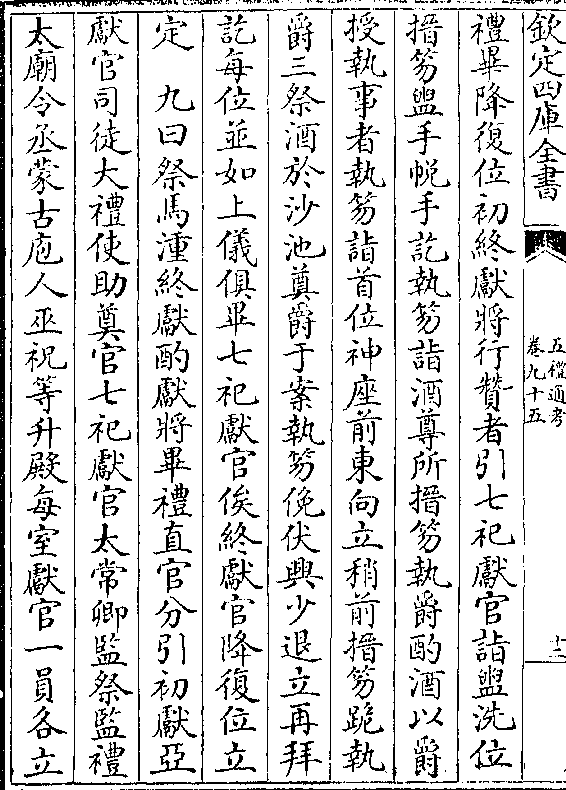 欽定四庫全書
五禮通考
卷九十五
十二
禮畢降復位初終獻將行贊者引七祀獻官詣盥洗位
搢笏盥手帨手訖執笏詣酒尊所搢笏執爵酌酒以爵
授執事者執笏詣首位神座前東向立稍前搢笏跪執
爵三祭酒於沙池奠爵于案執笏俛伏興少退立再拜
訖每位並如上儀俱畢七祀獻官俟終獻官降復位立
定　九曰祭馬湩終獻酌獻將畢禮直官分引初獻亞
獻官司徒大禮使助奠官七祀獻官太常卿監祭監禮
太廟令丞蒙古庖人巫祝等升殿每室獻官一員各立